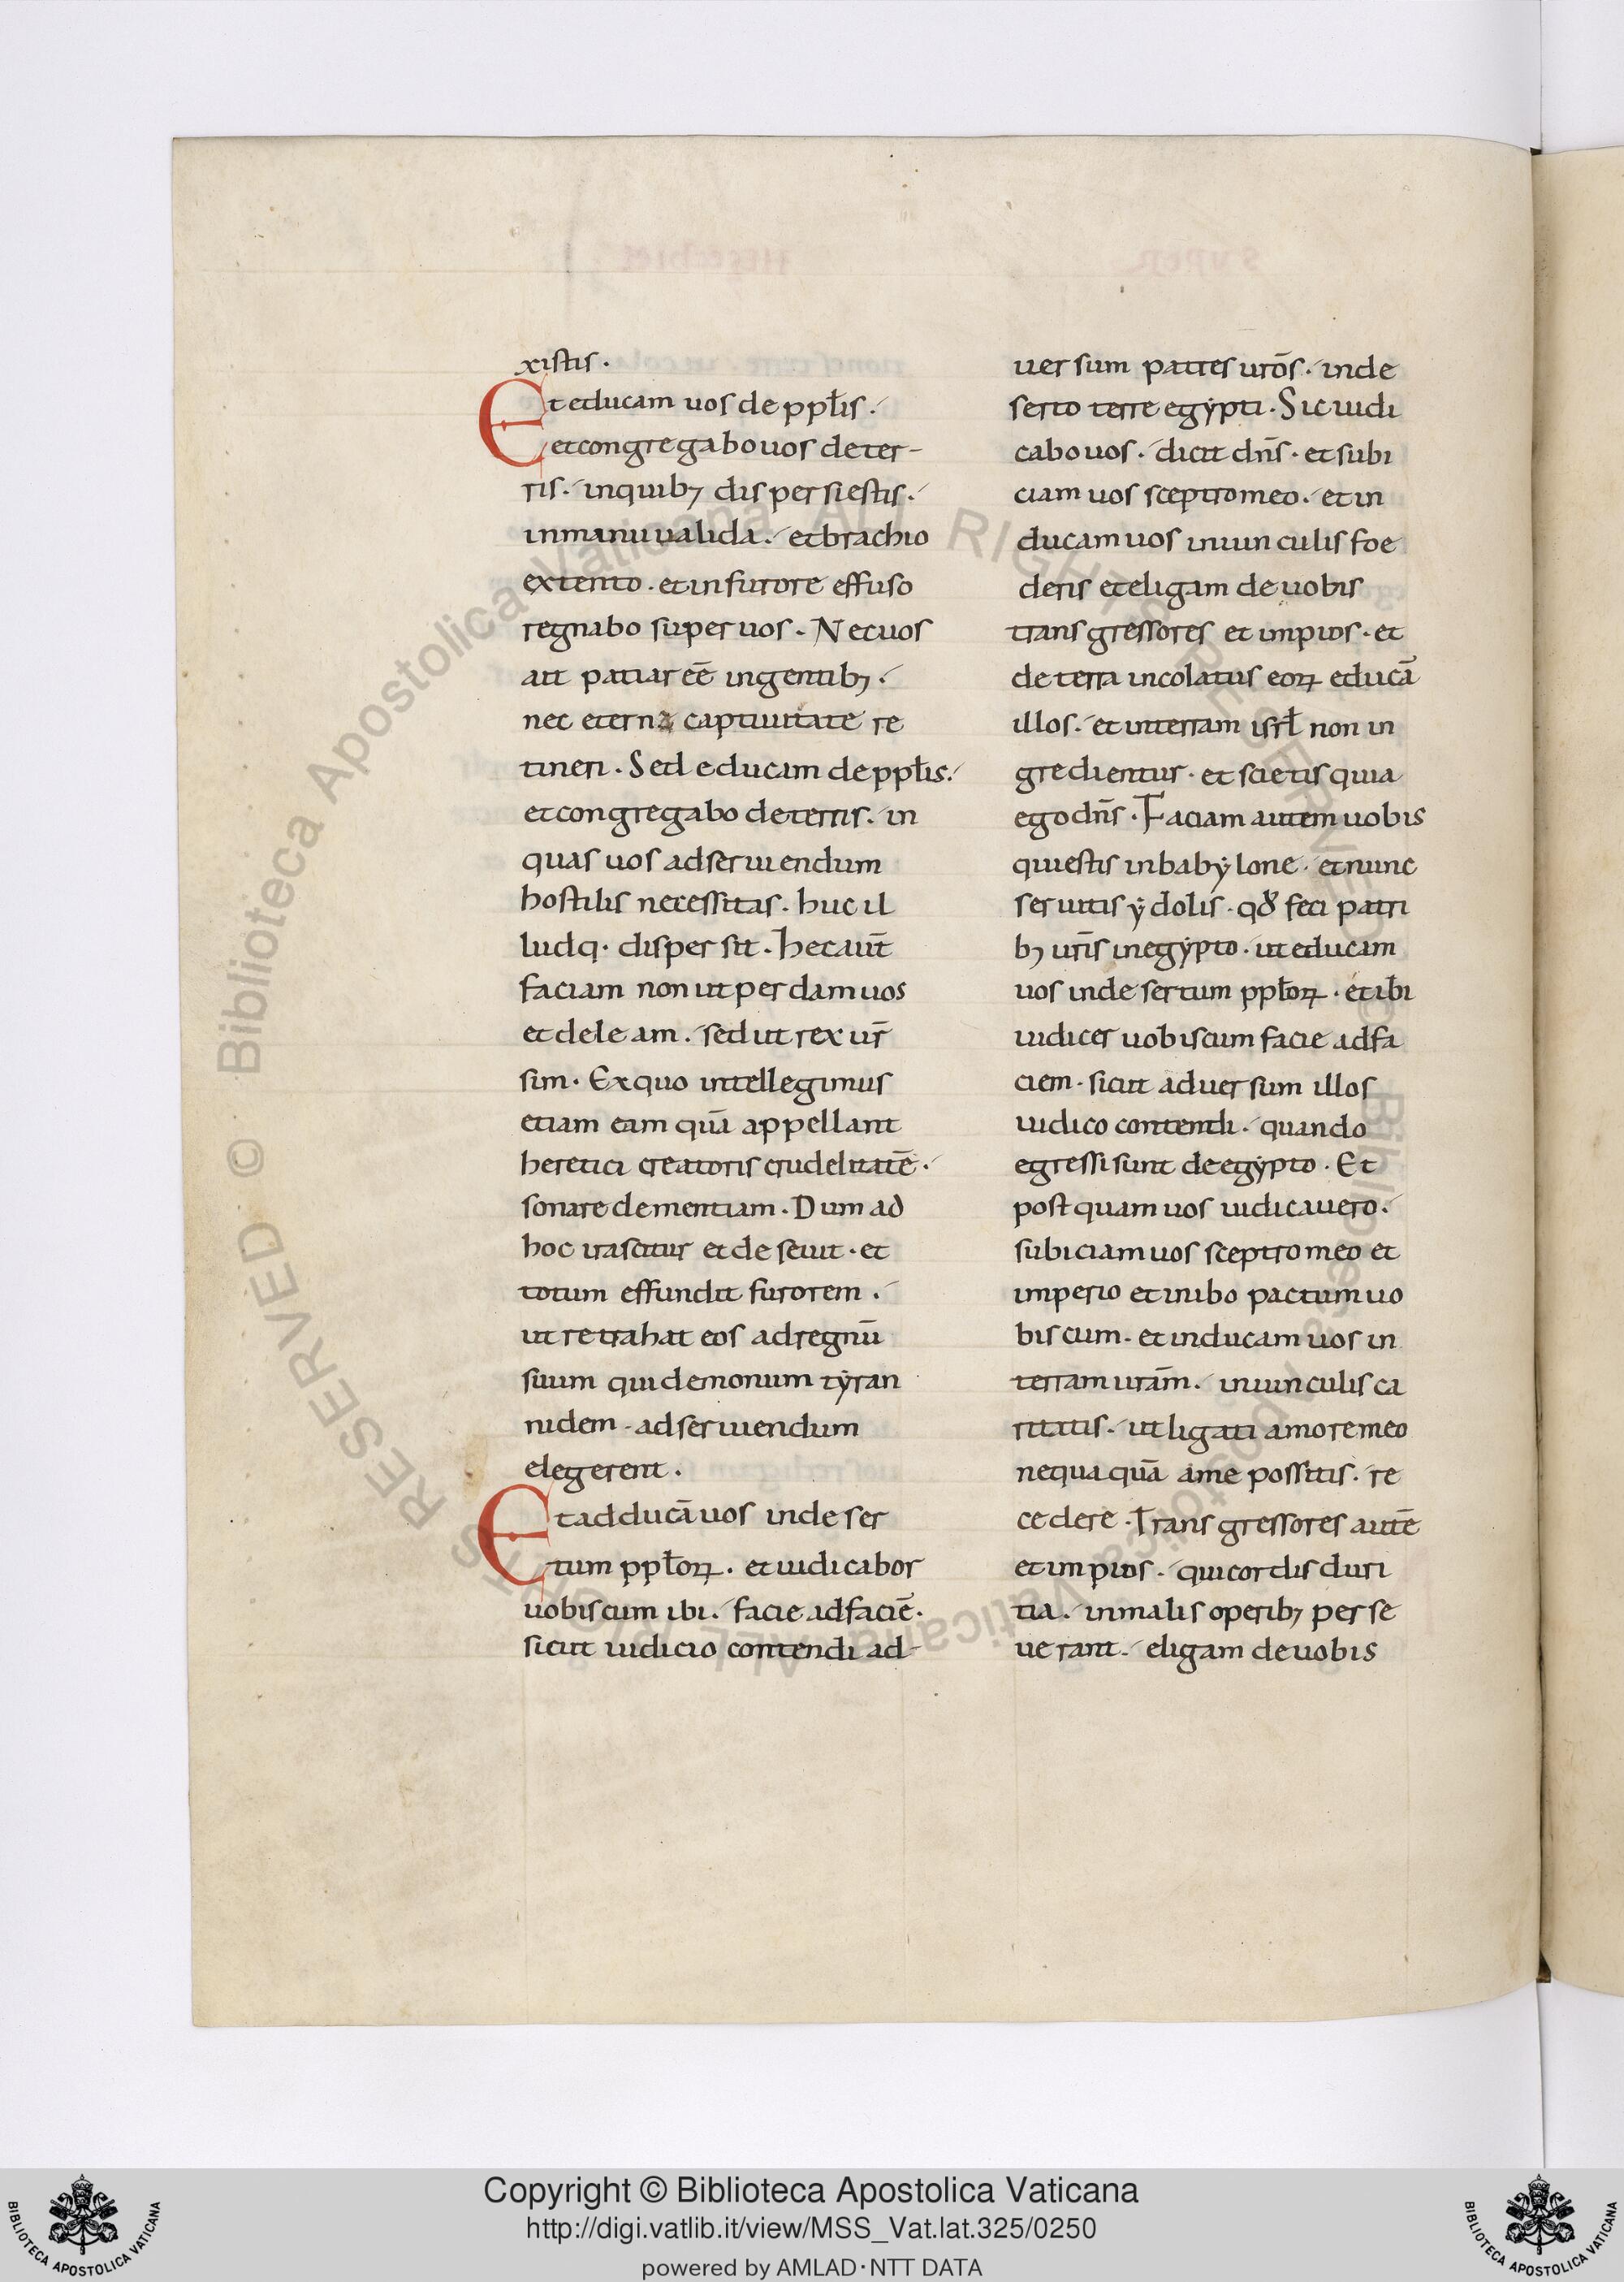 xistis.
Et educam uos de ppłis.
et congregabo uos de ter-
ris. inquib; dispersi estis.
in manu ualida. et brachio
extento. et in furore effuso
regnabo super uos. Nec uos
ait patiar eē in gentib;.
nec eterna captiuitate re
tineri. Sed educam de ppłis.
et congregabo de terris. in
quas uos ad seruiendum
hostilis necessitas. huc il
lucq· dispersit. hec aut̄
faciam non ut perdam uos
et deleam. sed ut rex ur̄
sim. Ex quo intellegimus
etiam eam quā appellant
heretici creatoris crudelitatē.
sonare clementiam. Dum ad
hoc irascitur et deseuit. et
totum effundit furorem.
ut retrahat eos ad regnū
suum qui demonum tẏran
nidem. ad seruiendum
elegerent.
Et adducā uos in deser
tum ppłoꝝ. et iudicabor
uobiscum ibi. facie ad faciē.
sicut iudicio contendi ad-
uersum patres urōs. in de
serto terre egẏpti. Sic iudi
cabo uos. dicit dn̄s. et subi
ciam uos sceptro meo. et in
ducam uos in uinculis foe
deris et eligam de uobis
transgressores et impios. et
de terra incolatus eoꝝ educā
illos. et in terram isrł non in
gredientur. et scietis quia
ego dn̄s. Faciam autem uobis
qui estis in babẏlone. et nunc
seruitis ẏdolis. qđ feci patri
b; ur̄is in egẏpto. ut educam
uos in desertum ppłoꝝ. et ibi
iudicer uobiscum facie ad fa
ciem. sicut aduersum illos
iudico contendi. quando
egressi sunt de egẏpto. Et
postquam uos iudicauero.
subiciam uos sceptro meo et
imperio et inibo pactum uo
biscum. et inducam uos in
terram urām. in uinculis ca
ritatis. ut ligati amore meo
nequaquā a me possitis. re
cedere. Transgressores autē
et impios. qui cordis duri
tia. in malis operib; perse
uerant. eligam de uobis
Copyright © Biblioteca Apostolica Vaticana
http://digi.vatlib.it/view/MSS_Vat.lat.325/0250
powered by AMLAD·NTT DATA
BIBLIOTECA APOSTOLICA VATICANA
BIBLIOTECA APOSTOLICA VATICANA